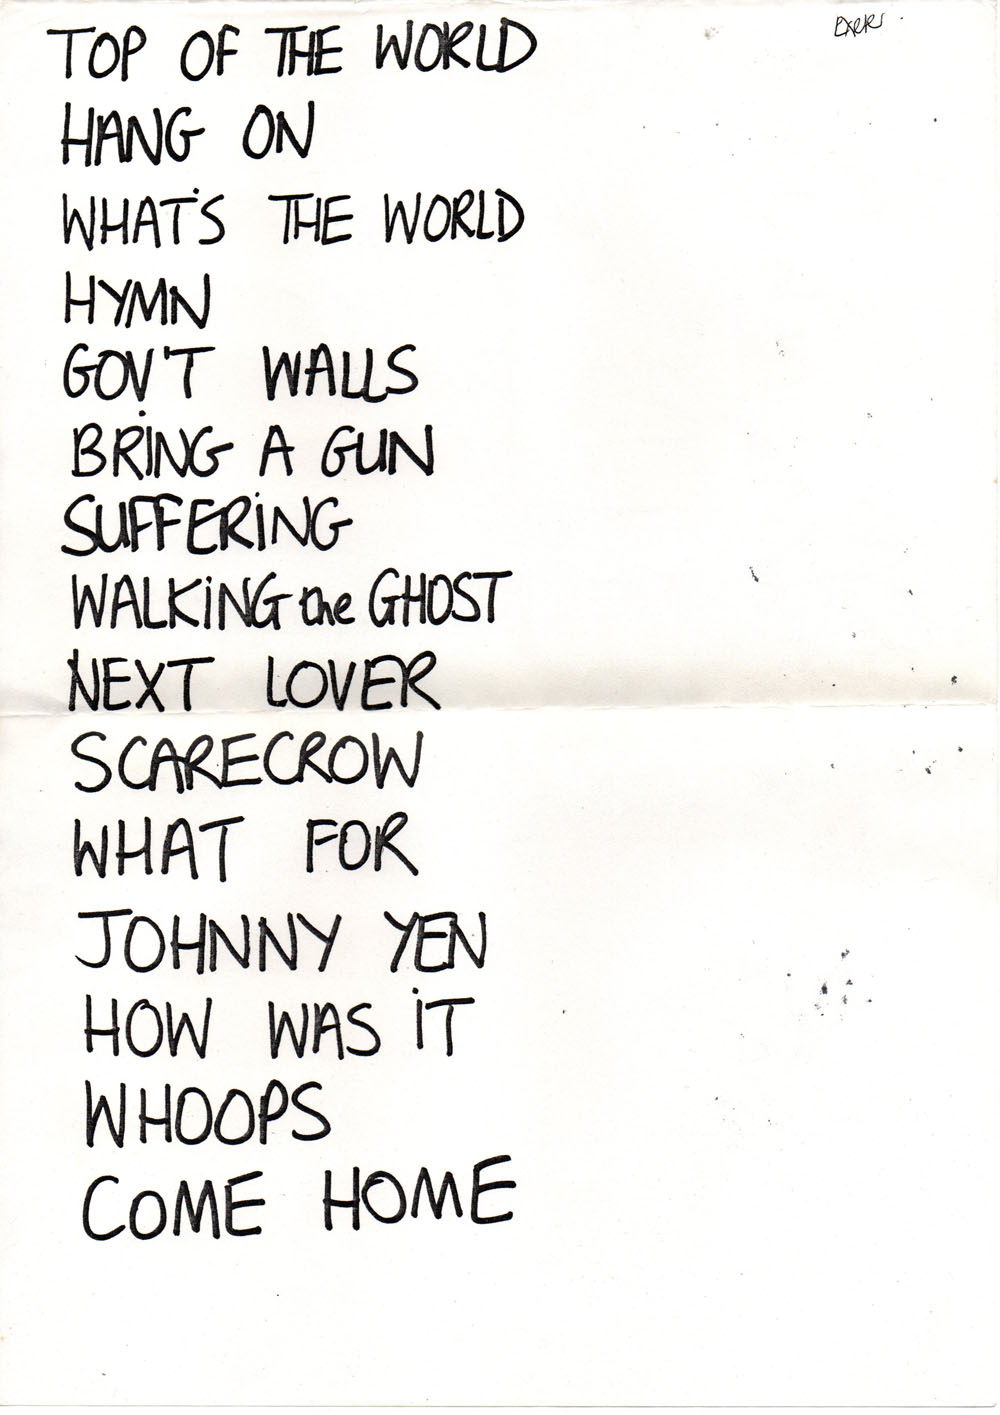 TOP OF THE WORLD
HANG ON
WHAT'S THE WORLD
HYMN
GOV'T WALLS
BRING A GUN
SUFFERING
WALKING the GHOST
NEXT LOVER
SCARECROW
WHAT FOR
JOHNNY YEN
HOW WAS IT
WHOOPS
COME HOME